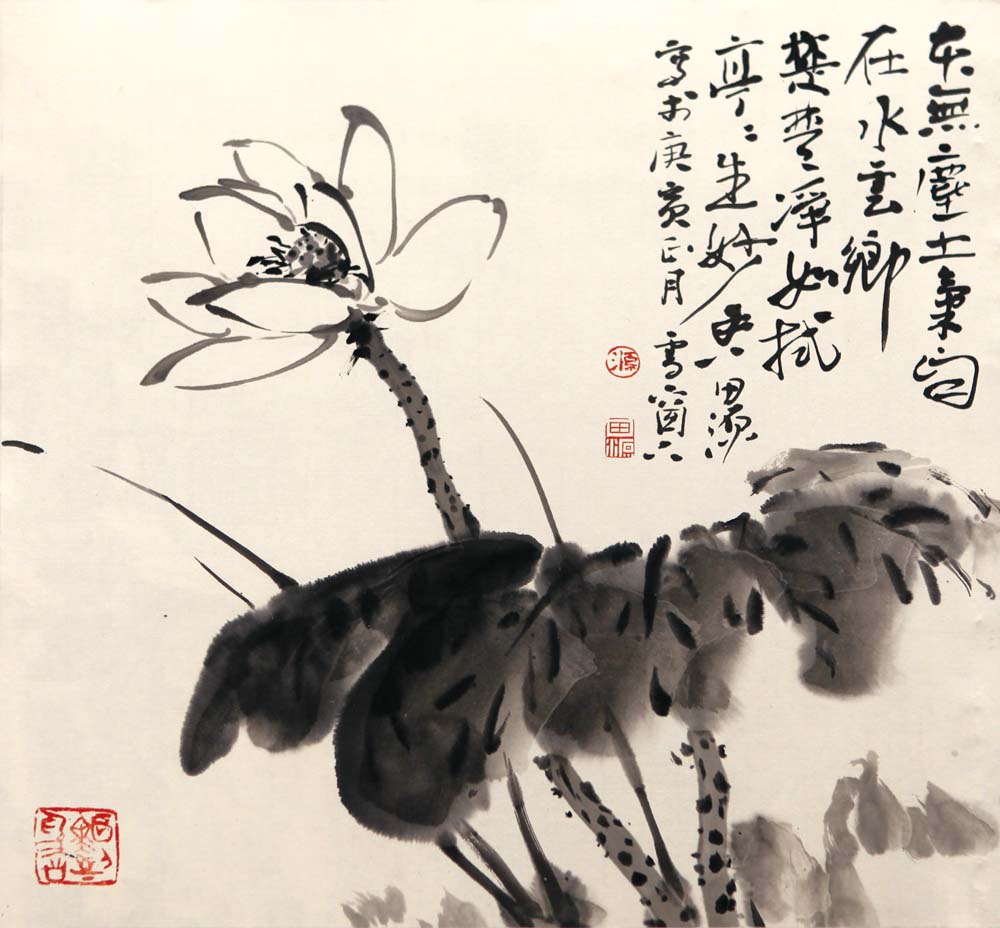 本無塵土氣自
在水雲鄉
楚楚淨如拭
亭〻生妙香 田源
寫於庚寅正月 雪窗下
源